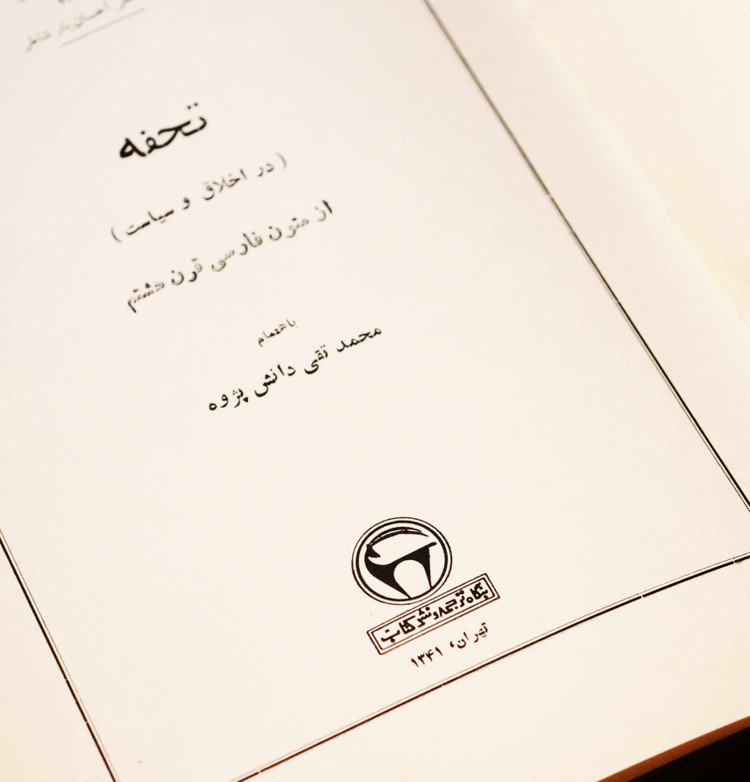 احسان یار شاطر
تحفه
( در اخلاق و سیاست )
از متون فارسی قرن هشتم
باهتمام
محمد تقی دانش پژوه
بنگاه ترجمه و نشر کتاب
تهران، ۱۳۴۱